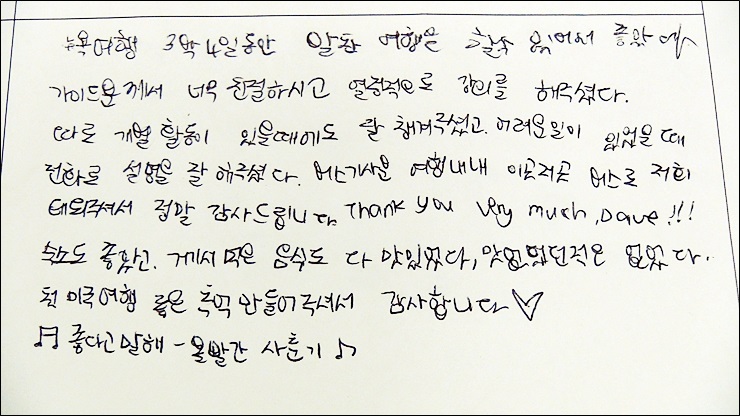 뉴욕여행 3박4일동안 알찬 여행을 할수 있어서 좋았어요
가이드분께서 너무 친절하시고 열정적으로 강의를 해주셨다.
따로 개별 활동이 있을때에도 잘 챙겨주셨고. 어려운일이 있었을 때
전화로 설명을 잘 해주셨다. 버스기사분 여행내내 이곳저곳 버스로 저희
태워주셔서 정말 감사드립니다 Thank you very much, Dave!!!
숙소도 좋았고. 게서 먹은 음식도 다 맛있었다, 맛없었던적은 없었다.
첫 미국여행 좋은 추억 만들어주셔서 감사합니다 ♡
♫ 좋다고말해 - 볼빨간 사춘기 ♪